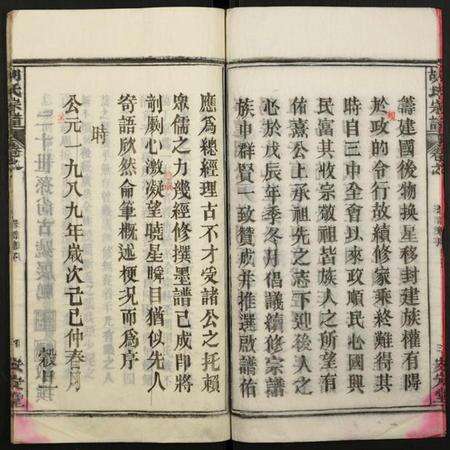 籌建國後物换星移封建族權有
於政的令行故續修家乘終難得其
時自三中全會以來政順民心國興
民富其收宗敬祖啓族人之所望有
佑熹公上承祖先之志下迎後人之
心於戊辰年季冬月倡議續修宗譜
族中群賢一致贊成并推選啟謨佑
應爲總經理古不才受諸公之托賴
衆儒之力幾經修撰墨譜已成即將
剞劂心激凝望曉星瞬目猶似先人
奇語欣然命筆概述梗況而爲序
時
公元一九八九年歲次己巳仲春月
穀旦
胡氏宗譜
卷之
安定堂